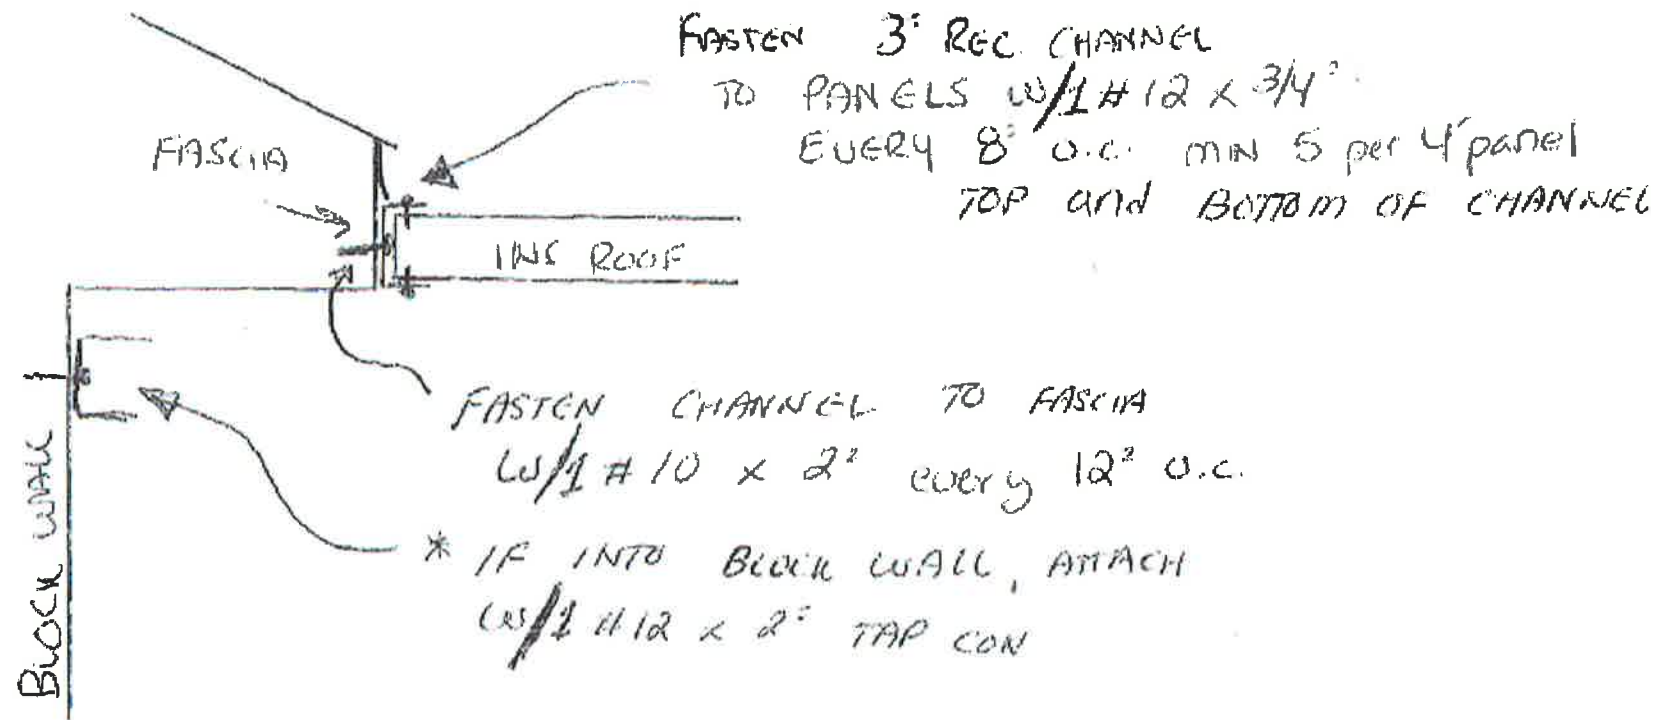 FASTEN 3" REC. CHANNEL
TO PANELS W/1 # 12 x 3/4"
EVERY 8" O.C. MIN 5 per 4' panel
TOP and BOTTOM OF CHANNEL
FASCIA
INS ROOF
FASTEN CHANNEL TO FASCIA
W/1 # 10 x 2" every 12" O.C.
* IF INTO BLOCK WALL, ATTACH
W/1 #12 x 2" TAP CON
BLOCK WALL